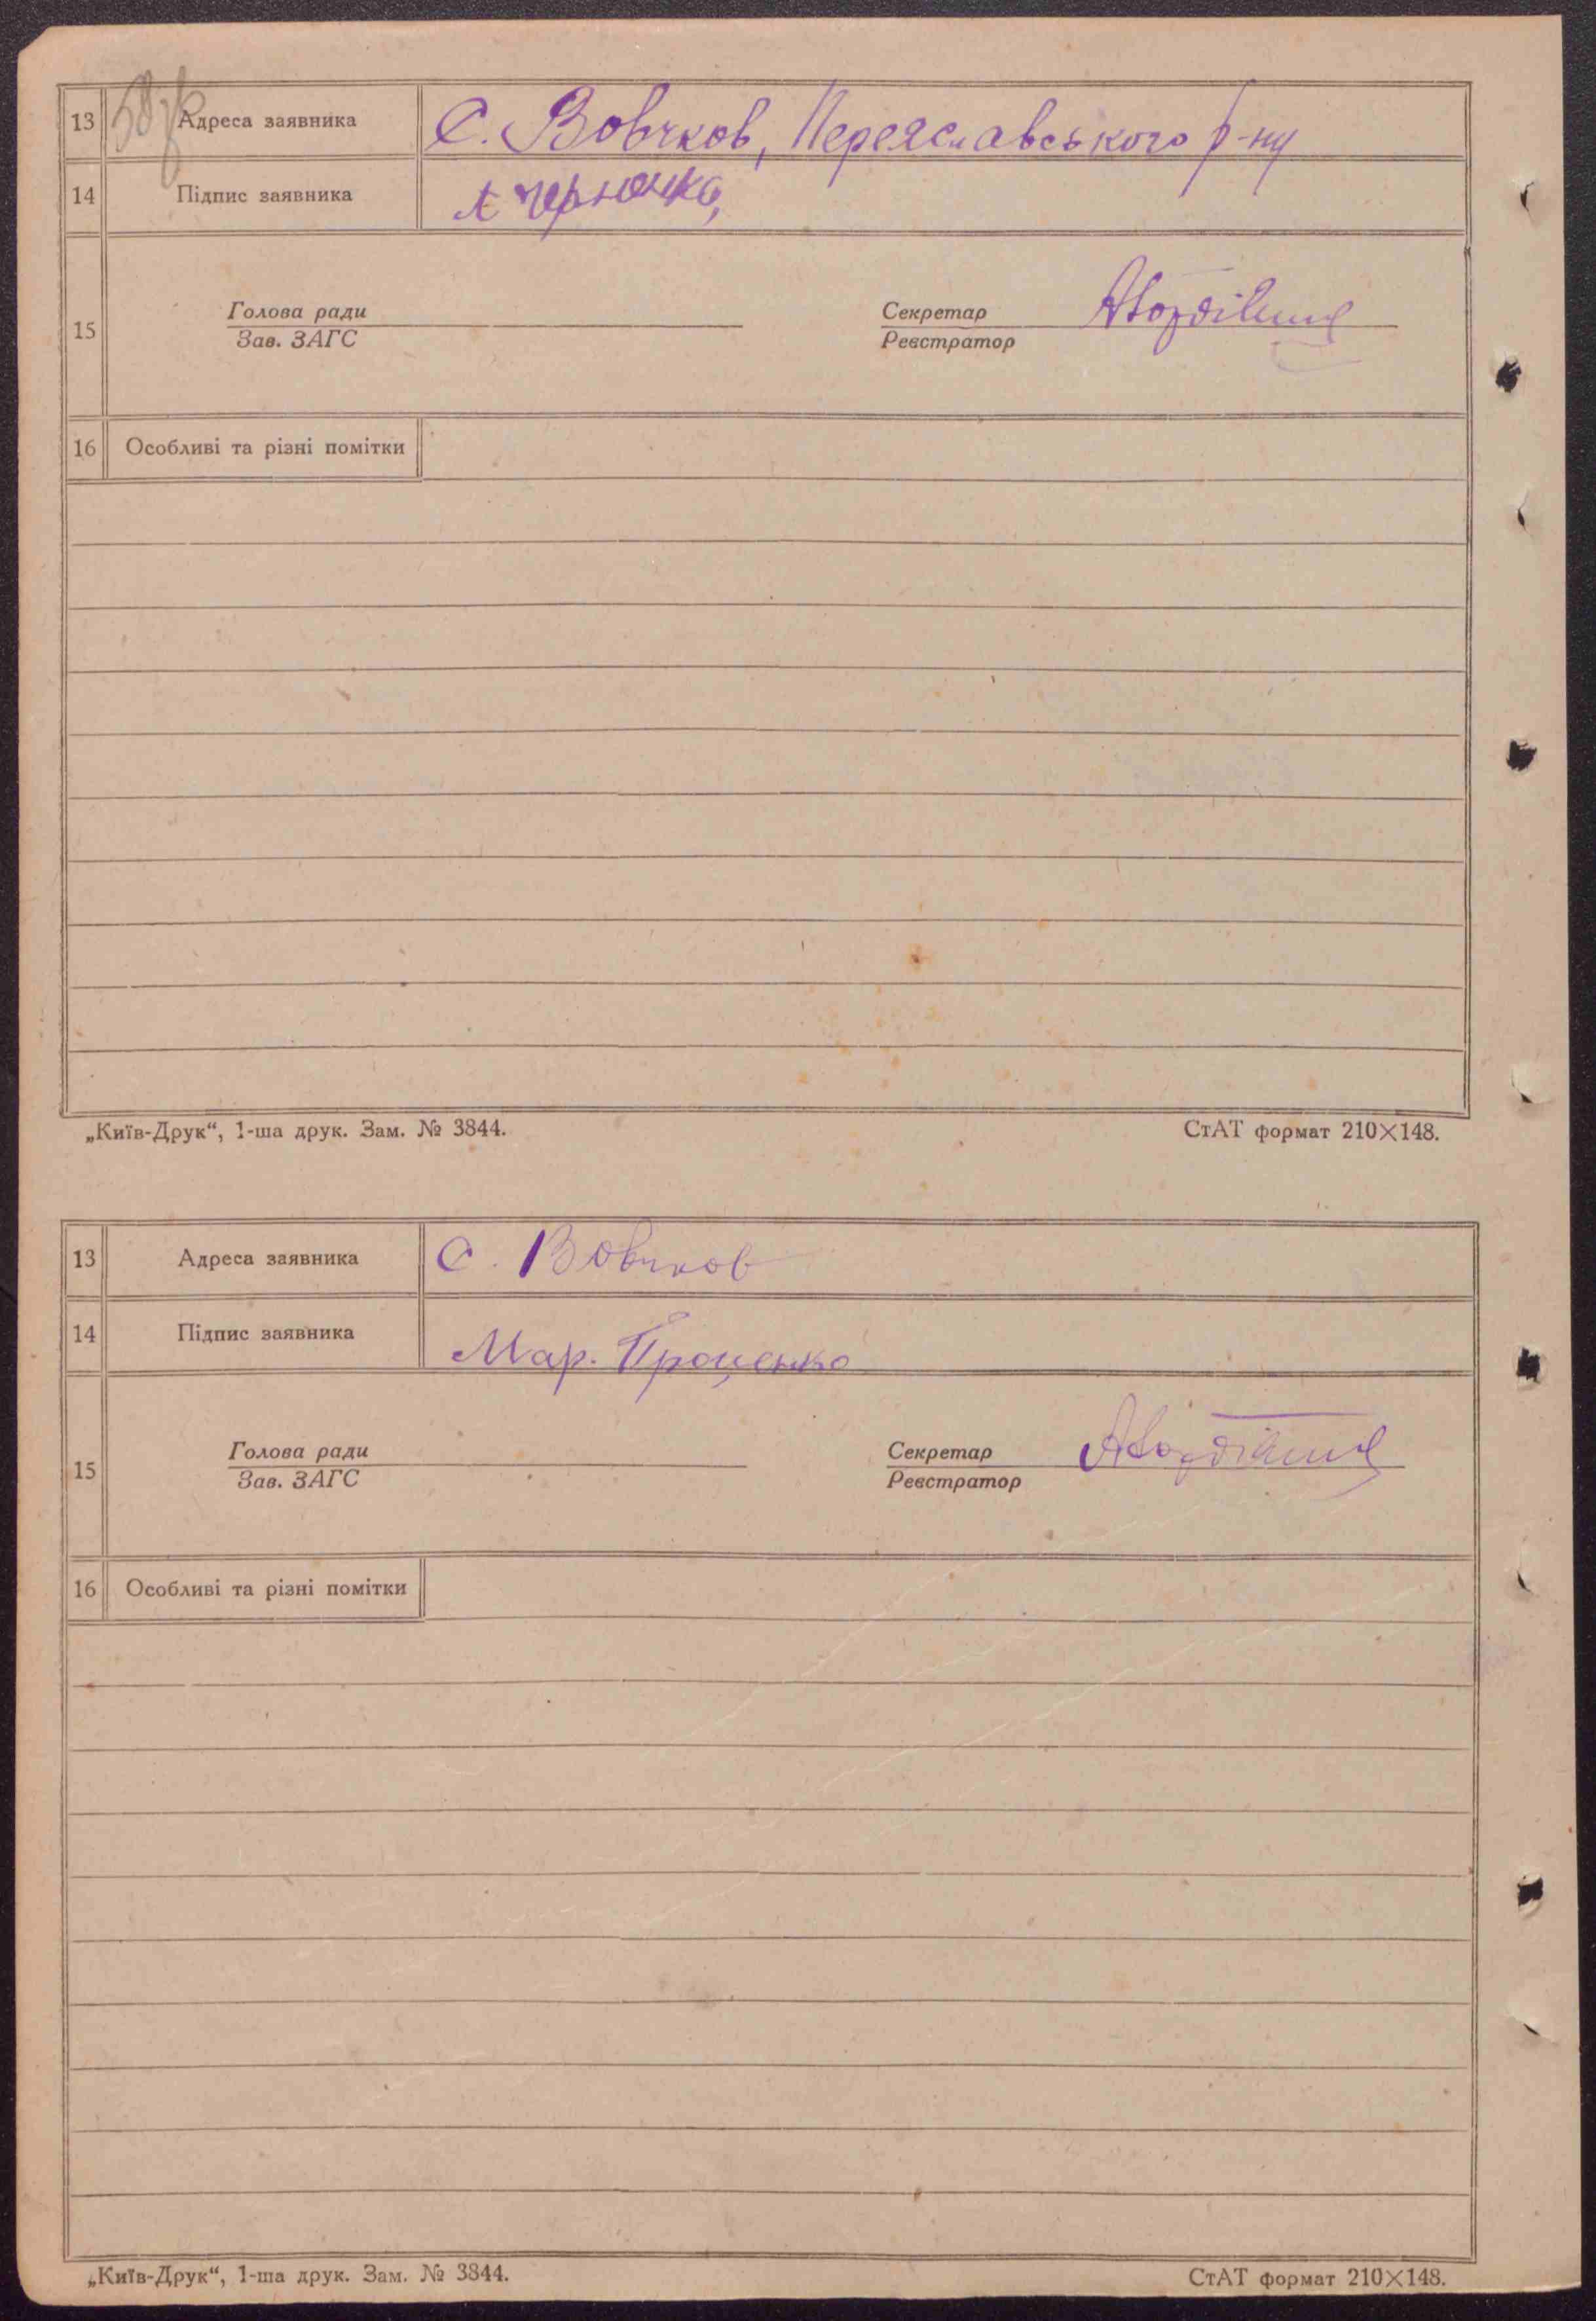 13 Адреса заявника С. Вовчков, Переяславського р-ну
14 Підпис заявника
15 Голова ради Секретар
Зав. ЗАГС Реєстратор
16 Особливі та різні помітки
„Київ-Друк“, 1-ша друк. Зам. № 3844. СтАТ формат 210×148.
13 Адреса заявника С. Вовчков
14 Підпис заявника Мар. Проценко
15 Голова ради Секретар
Зав. ЗАГС Реєстратор
16 Особливі та різні помітки
„Київ-Друк“, 1-ша друк. Зам. № 3844. СтАТ формат 210×148.